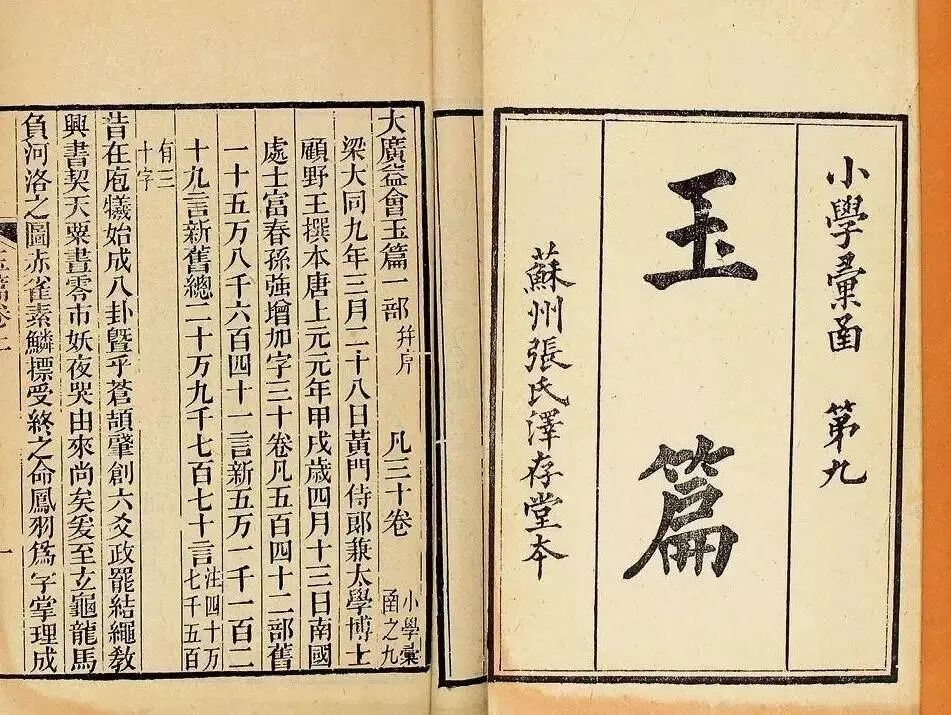 小學彙函 第九
玉篇
蘇州張氏澤存堂本
大廣益會玉篇一部 并序 凡三十卷 小學彙函之九
梁大同九年三月二十八日黃門侍郎兼太學博士
顧野王撰本唐上元元年甲戌歲四月十三日南國
處士富春孫強增加字三十卷凡五百四十二部舊
一十五万八千六百四十一言新五万一千一百二
十九言新舊總二十万九千七百七十言 注四十万七千五百
有三十字
昔在庖犧始成八卦暨乎蒼頡肇創六爻政罷結繩教
興書契天粟晝零市妖夜哭由來尚矣爰至玄龜龍馬
負河洛之圖赤雀素鱗摽受終之命鳳羽爲字掌理成